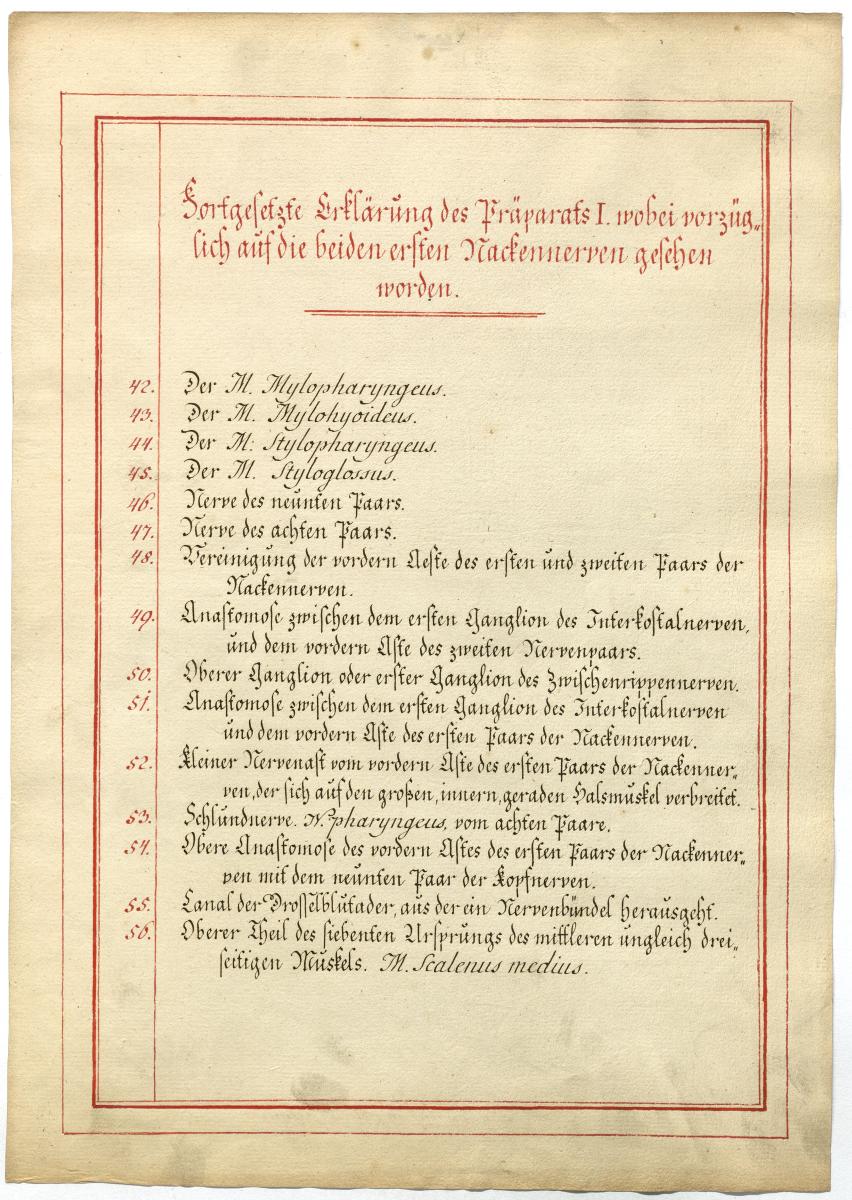 Fortgesetzte Erklärung des Präparats I. wobei vorzüg„
lich auf die beiden ersten Nackennerven gesehen
worden.
42. Der M. Mylopharyngeus.
43. Der M. Mylohyoideus.
44. Der M: Stylopharyngeus.
45. Der M. Styloglossus.
46. Nerve des neunten Paars.
47. Nerve des achten Paars.
48. Vereinigung der vordern Aeste des ersten und zweiten Paars der
Nackennerven.
49. Anastomose zwischen dem ersten Ganglion des Interkostalnerven,
und dem vordern Aste des zweiten Nervenpaars.
50. Oberer Ganglion oder erster Ganglion des Zwischenrippennerven.
51. Anastomose zwischen dem ersten Ganglion des Interkostalnerven
und dem vordern Aste des ersten Paars der Nackennerven.
52. Kleiner Nervenast vom vordern Aste des ersten Paars der Nackenner„
ven, der sich auf den großen, innern, geraden Halsmuskel verbreitet.
53. Schlundnerve. N. pharyngeus, vom achten Paare.
54. Obere Anastomose des vordern Astes des ersten Paars der Nackenner„
ven mit dem neunten Paar der Kopfnerven.
55. Canal der Drosselblutader, aus der ein Nervenbündel herausgeht.
56. Oberer Theil des siebenten Ursprungs des mittleren ungleich drei„
seitigen Muskels. M. Scalenus medius.